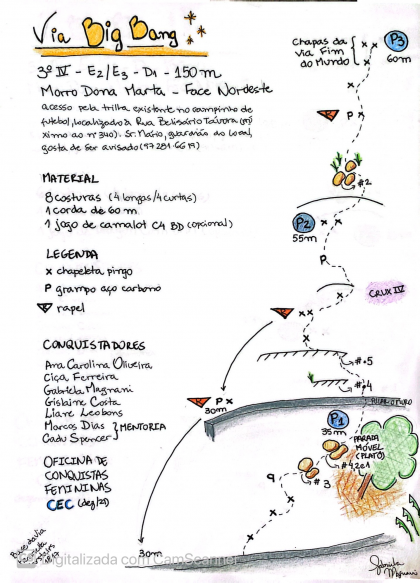 Via Big Bang
3º IV - E2/E3 - D1 - 150m
Morro Dona Marta - Face Nordeste
acesso pela trilha existente no campinho de
futebol, localizado à Rua Belisário Távora (pró
ximo ao nº 340). Sr. Mário, guardião do local,
gosta de ser avisado (97281-6619)
MATERIAL
8 costuras (4 longas/4 curtas)
1 corda de 60 m
1 jogo de camalot C4 BD (opcional)
LEGENDA
x chapeleta pingo
P grampo aço carbono
R rapel
CONQUISTADORES
Ana Carolina Oliveira
Ciça Ferreira
Gabriela Magnani
Gislaine Costa
Liane Leobons
Marcos Dias
Cadu Spencer
MENTORIA
OFICINA DE
CONQUISTAS
FEMININAS
CEC (dez/21)
Base da via
30m
Digitalizada com CamScanner
Chapas da
via Fim
do Mundo
P3
60m
P
#2
P2
55m
P
CRUX IV
#.5
#.4
R P x
30m
P1
35m
PARADA
MÓVEL
(PLATÔ)
#.4 2 e 1
#.3
P
Gabriela
Magnani